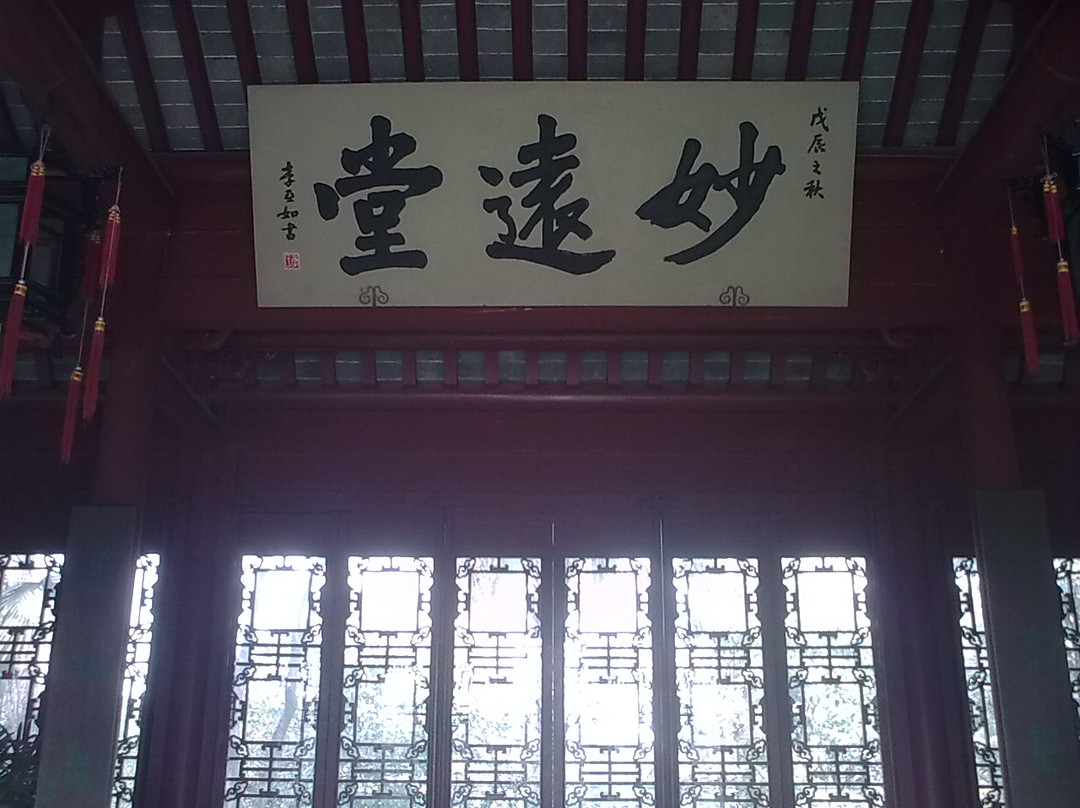 戊辰之秋
妙遠堂
李亞如書